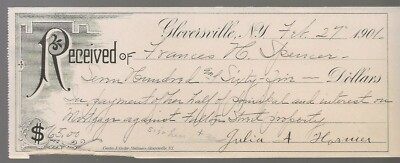 Gloversville, N.Y. Feb. 27 1901
Received of Frances H. Spencer
Hundred and Sixty-five — Dollars
in payment of her half of principal and interest on
Mortgage against Fulton Street property
$ 65.00
Julia A